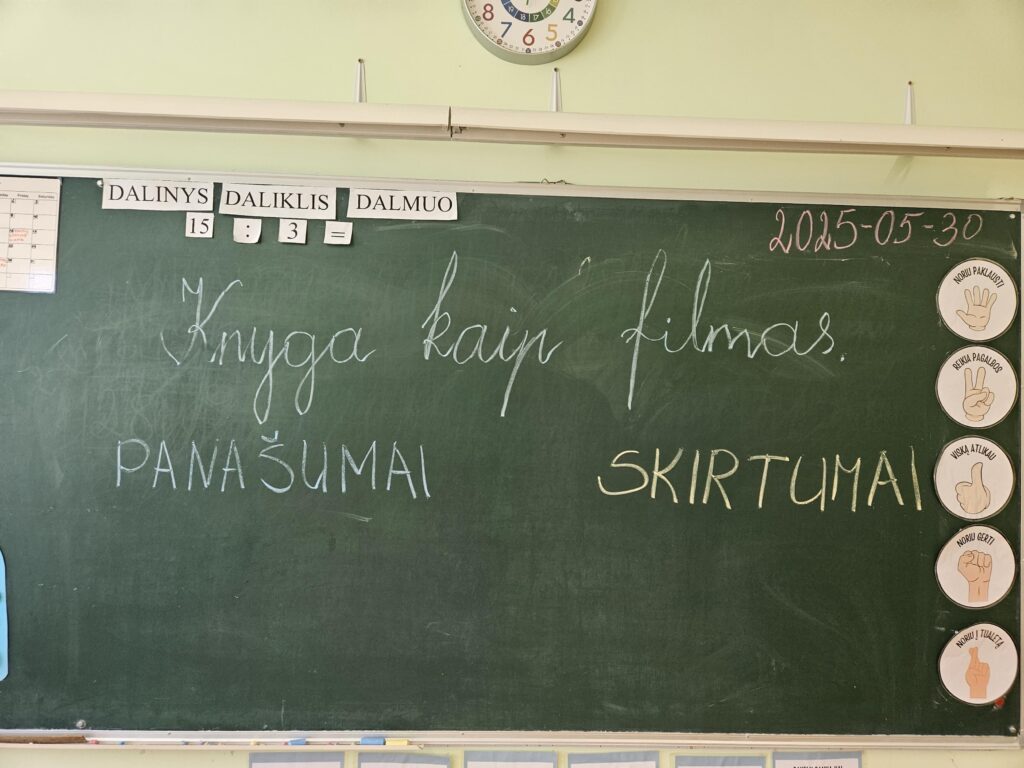 8 7 6 5 4
DALINYS DALIKLIS DALMUO
15 : 3 =
2025-05-30
Knyga kaip filmas.
PANAŠUMAI SKIRTUMAI
NORIU PAKLAUSTI
REIKIA PAGALBOS
VISKĄ ATLIKAU
NORIU GERTI
NORIU Į TUALETĄ